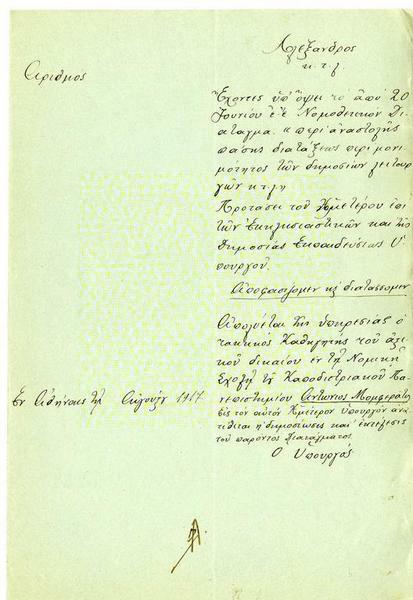 Αλέξανδρος
κ.τ.λ.
Αριθμος
Έχοντες υπ' όψει το από 20
Ιουνίου ε.έ. Νομοθετικόν Διά-
ταγμα "περί αναστολής
πάσης διατάξεως περί μονι-
μότητος των δημοσίων λειτουρ
γών κ.τ.λ.
Προτάσει του Ημετέρου επί
των Εκκλησιαστικών και της
Δημοσίας Εκπαιδεύσεως Υ-
πουργού.
Αποφασίζομεν κ διατάσσομεν
Απολύεται της υπηρεσίας ο
τακτικός Καθηγητής του
δικαίου εν τη Νομική
Σχολή του Καποδιστριακού Πα-
νεπιστημίου Αντώνιος Μομφεράτος
εις τον αυτόν Ημέτερον Υπουργόν ανα
τίθεται η δημοσίευσις και εκτέλεσις
του παρόντος Διατάγματος
Εν Αθήναις τη Αυγούστου 1917
Ο Υπουργός